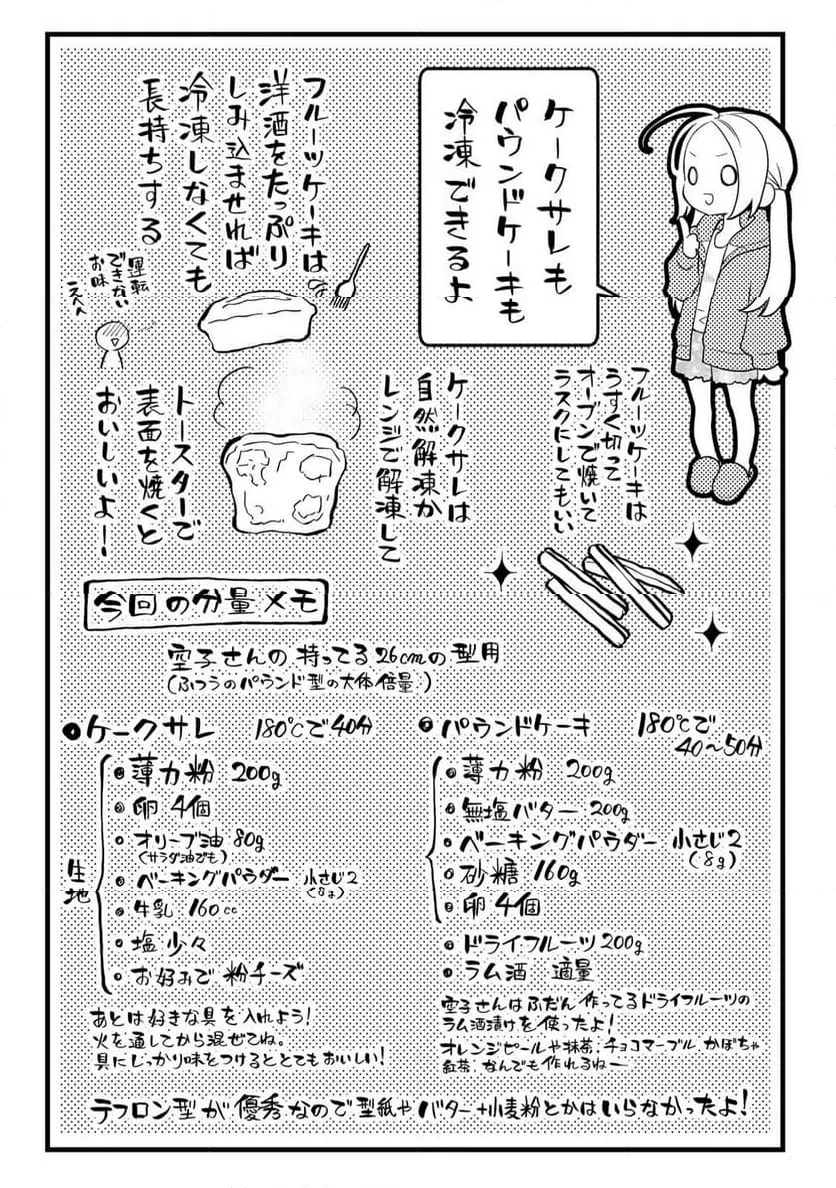 ケークサレも
パウンドケーキも
冷凍できるよ
フルーツケーキは
洋酒をたっぷり
しみ込ませれば
冷凍しなくても
長持ちする
運転
できない
お味
へへへ
フルーツケーキは
うすく切って
オーブンで焼いて
ラスクにしてもいい
ケークサレは
自然解凍か
レンジで解凍して
トースターで
表面を焼くと
おいしいよー!
今回の分量メモ
空子さんの持ってる26cmの型用
(ふつうのパウンド型の大体倍量)
ケークサレ 180℃で40分
生地
薄力粉 200g
卵 4個
オリーブ油 80g
(サラダ油でも)
ベーキングパウダー 小さじ2
(8g)
牛乳 160cc
塩 少々
お好みで 粉チーズ
あとは好きな具を入れよう!
火を通してから混ぜてね。
具にしっかり味をつけるととてもおいしい!
パウンドケーキ 180℃で
40〜50分
薄力粉 200g
無塩バター 200g
ベーキングパウダー 小さじ2
(8g)
砂糖 160g
卵 4個
ドライフルーツ 200g
ラム酒 適量
空子さんはふだん作ってるドライフルーツの
ラム酒漬けを使ったよ!
オレンジピールや抹茶、チョコマーブル、かぼちゃ
紅茶、なんでも作れるねー
テフロン型が優秀なので型紙やバター+小麦粉とかはいらなかったよ!